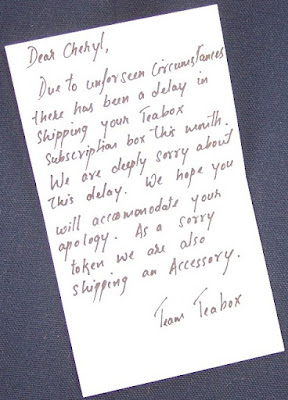 Dear Cheryl,
Due to unforseen Circumstances
there has been a delay in
shipping your Teabox
subscription box this month.
We are deeply sorry about
this delay. We hope you
will accomonodate your
apology. As a sorry
token we are also
shipping an Accessory.
Team Teabox